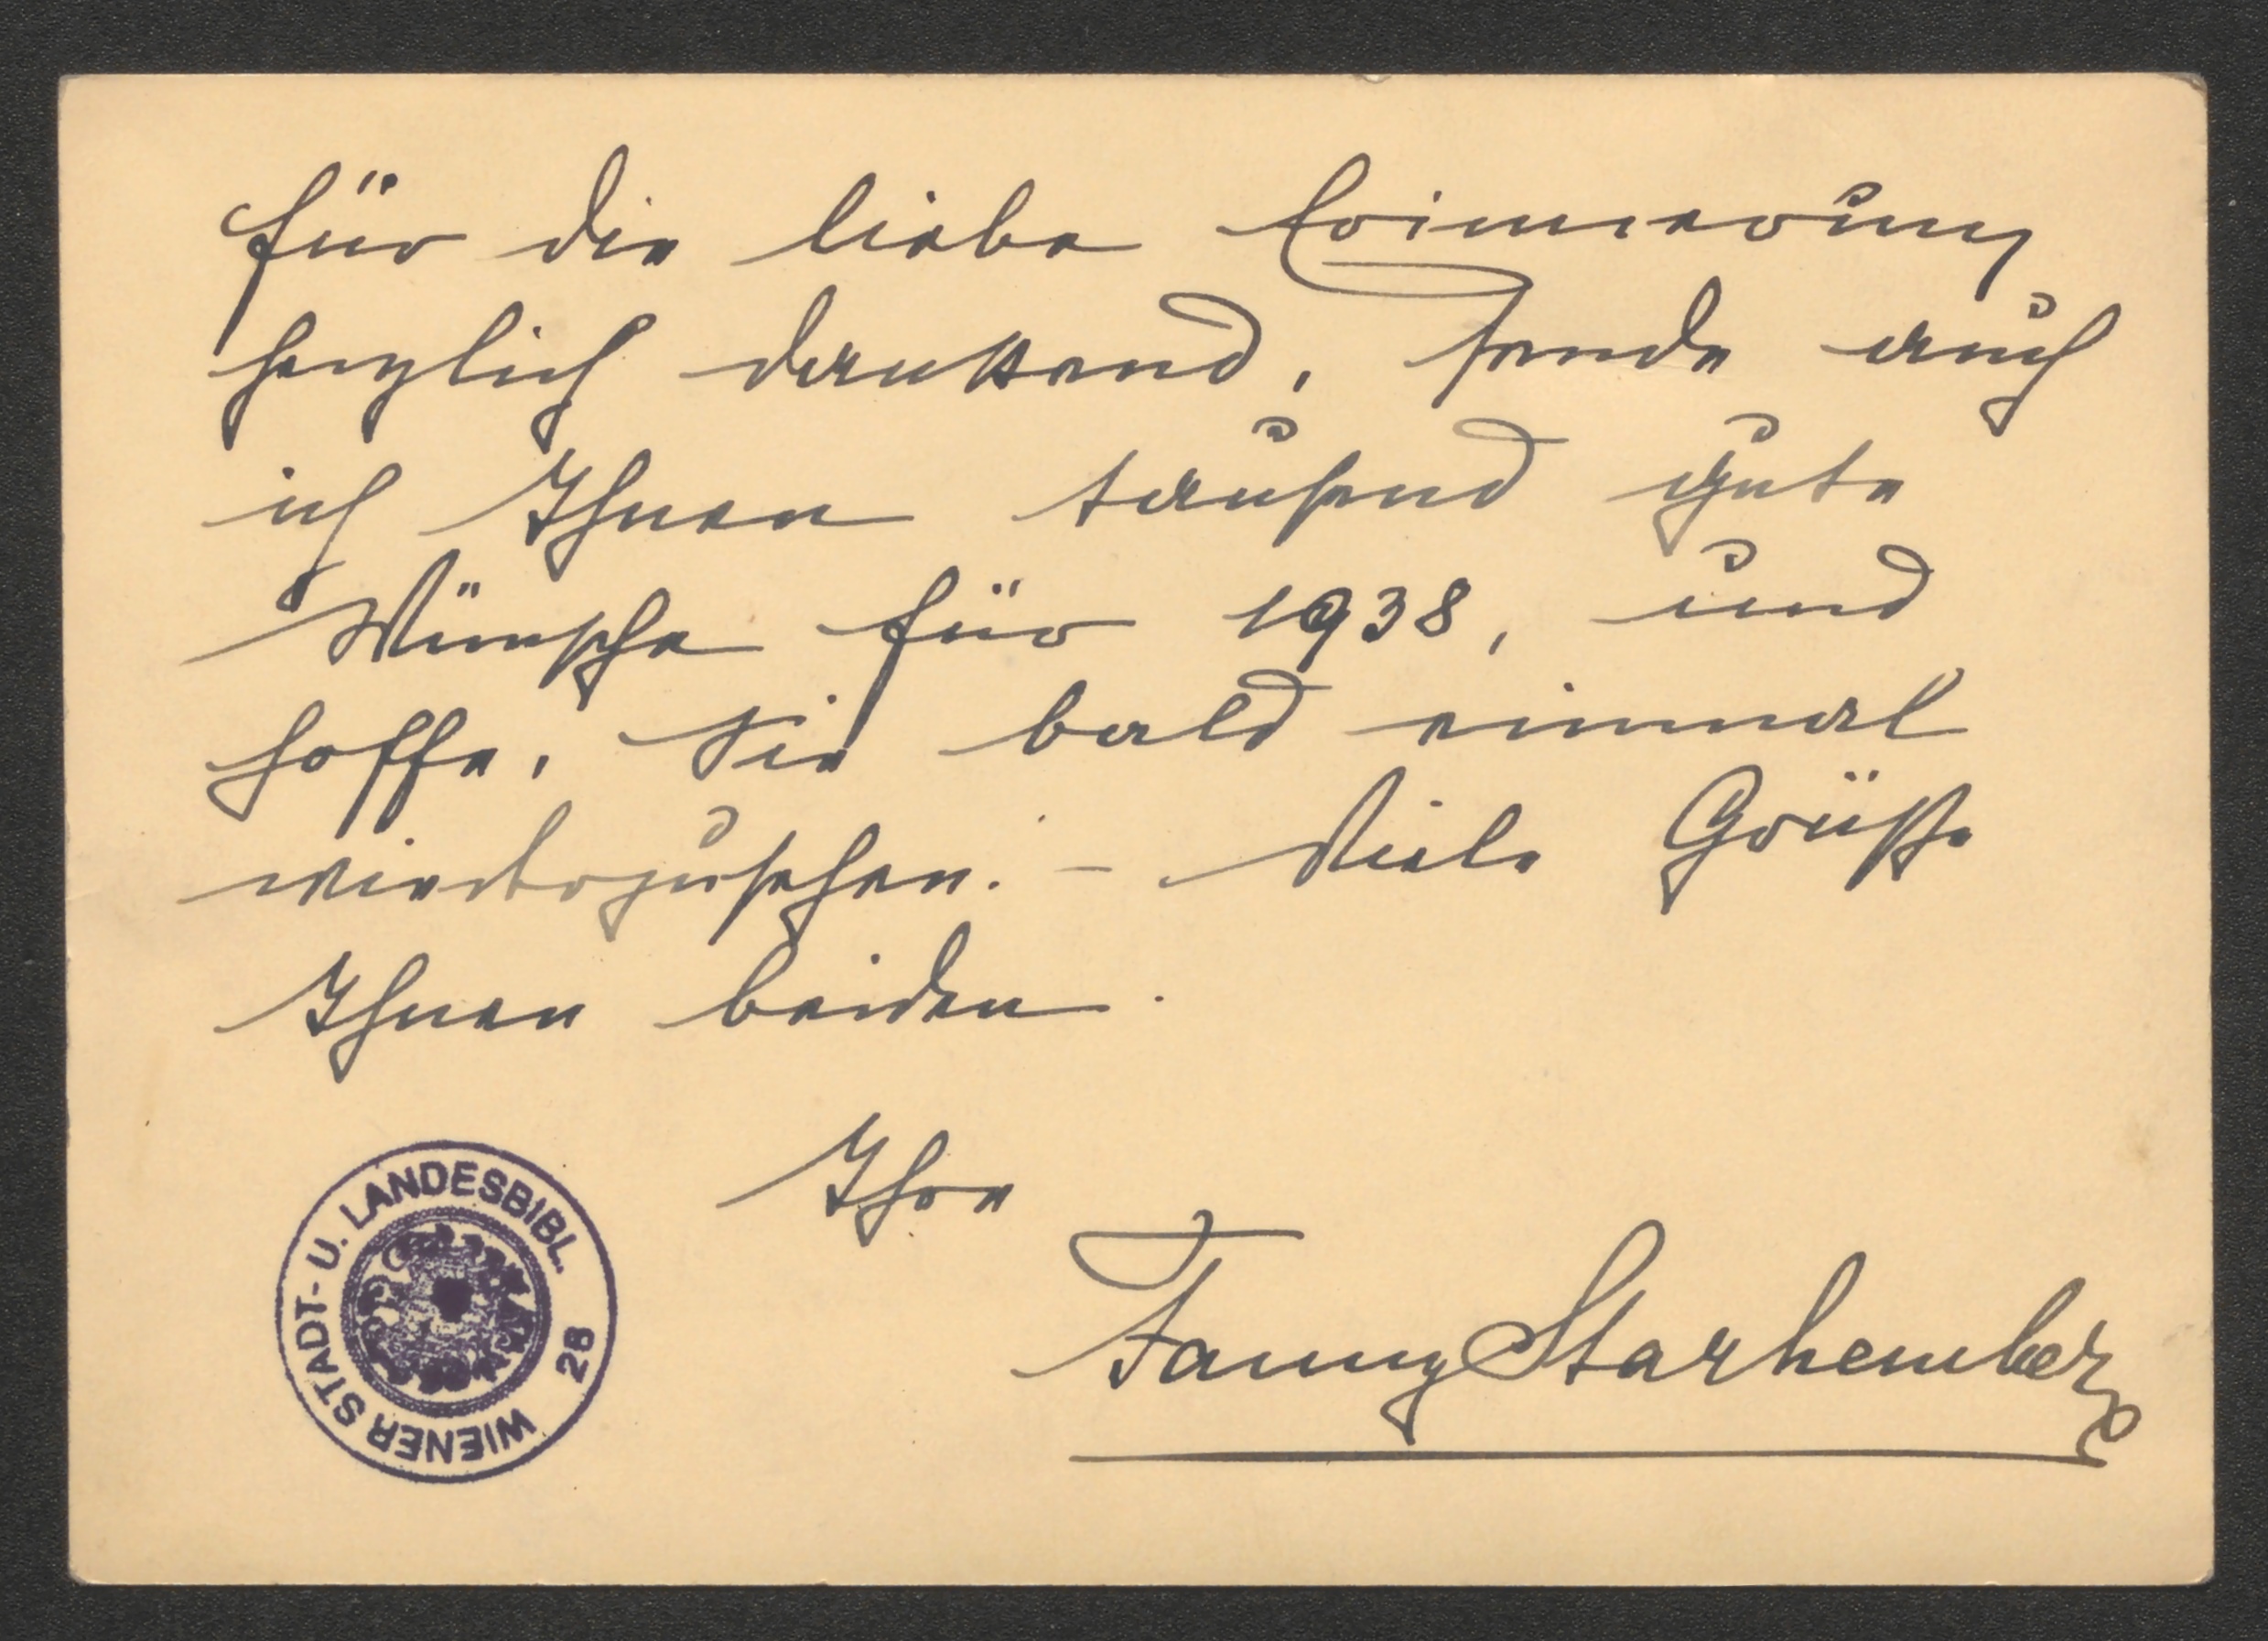 für die liebe Erinnerung
herzlich dankend, sende auch
ich Ihnen tausend gute
Wünsche für 1938, und
hoffe, Sie bald einmal
wiederzusehen. – Viele Grüße
Ihnen beiden.
Ihre
Fanny Starhemberg
WIENER STADT- U. LANDESBIBL. 28